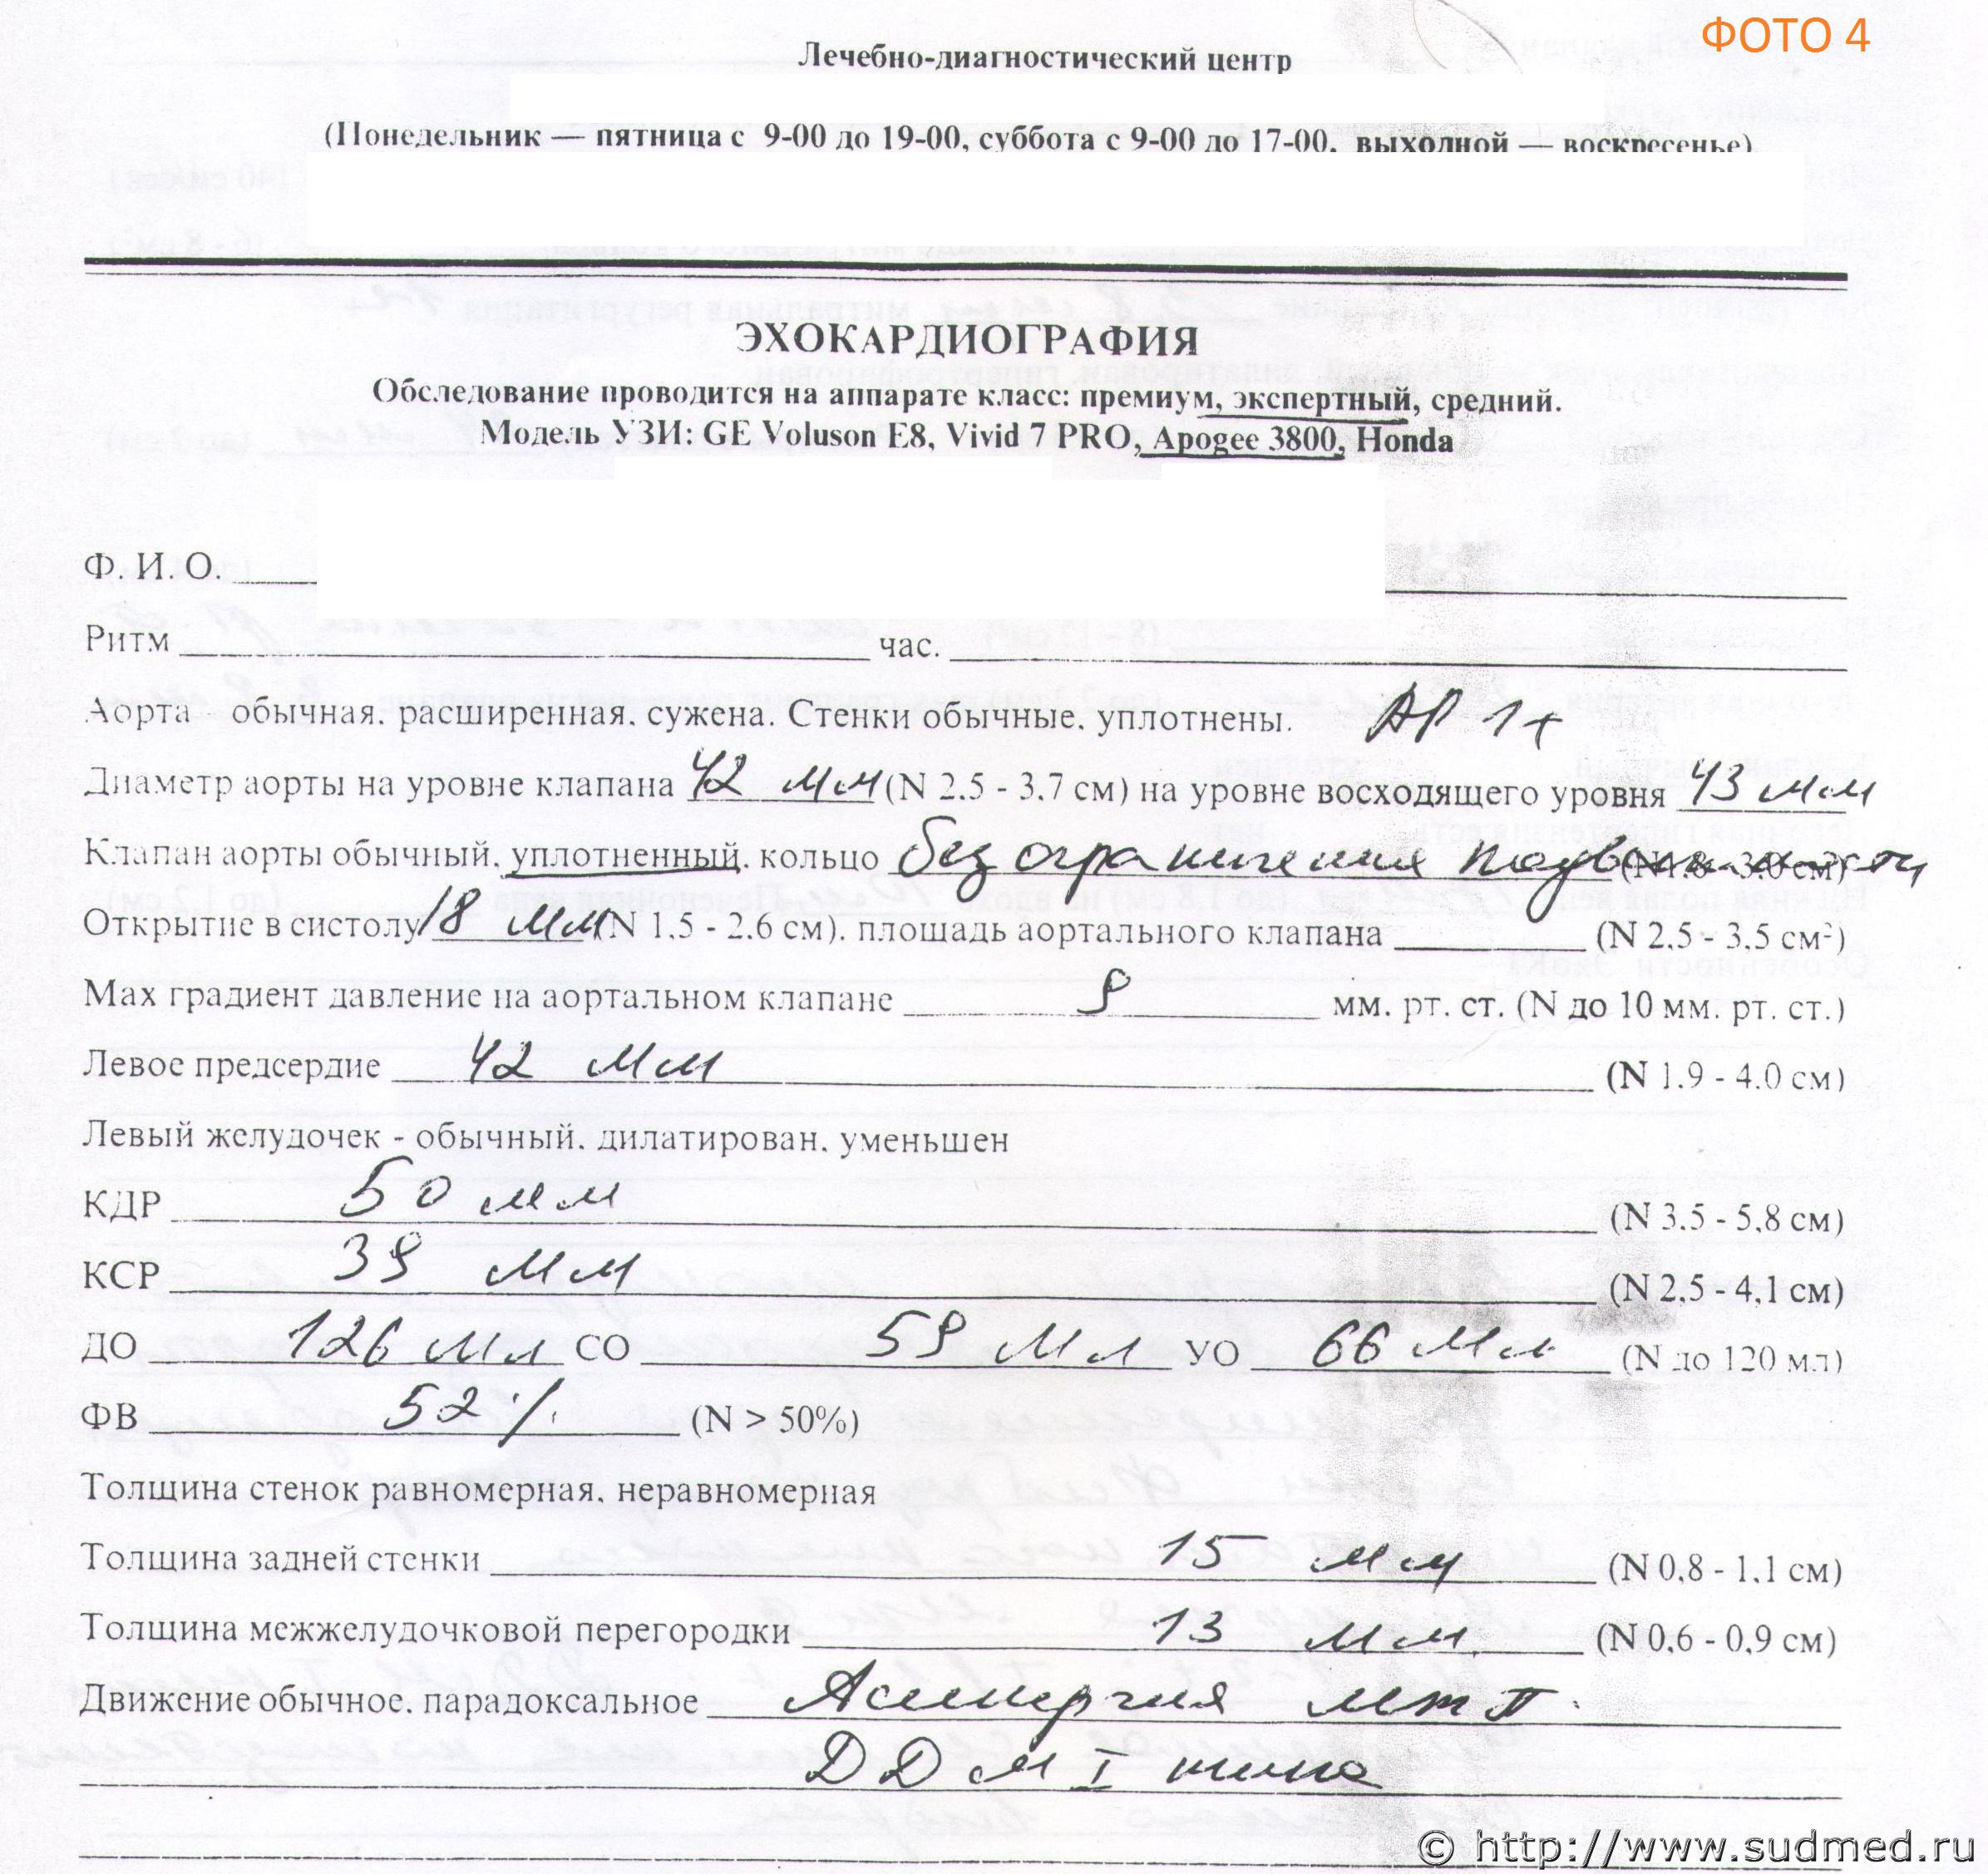 ФОТО 4
Лечебно-диагностический центр
(Понедельник — пятница с 9-00 до 19-00, суббота с 9-00 до 17-00, выходной — воскресенье)
ЭХОКАРДИОГРАФИЯ
Обследование проводится на аппарате класс: премиум, экспертный, средний.
Модель УЗИ: GE Voluson E8, Vivid 7 PRO, Apogee 3800, Honda
Ф. И. О.
Ритм час.
Аорта обычная, расширенная, сужена. Стенки обычные, уплотнены. АР 1+
Диаметр аорты на уровне клапана 42 мм (N 2.5 - 3.7 см) на уровне восходящего уровня 43 мм
Клапан аорты обычный, уплотненный, кольцо без ограничения подвижности (N 1.8 - 3.0 см)
Открытие в систолу 18 мм (N 1.5 - 2.6 см), площадь аортального клапана (N 2.5 - 3.5 см²)
Max градиент давление на аортальном клапане 9 мм. рт. ст. (N до 10 мм. рт. ст.)
Левое предсердие 42 мм (N 1.9 - 4.0 см)
Левый желудочек - обычный, дилатирован, уменьшен
КДР 50 мм (N 3.5 - 5,8 см)
КСР 39 мм (N 2,5 - 4,1 см)
ДО 126 мл СО 59 мл УО 66 мл (N до 120 мл)
ФВ 52 % (N > 50%)
Толщина стенок равномерная, неравномерная
Толщина задней стенки 15 мм (N 0,8 - 1,1 см)
Толщина межжелудочковой перегородки 13 мм (N 0,6 - 0,9 см)
Движение обычное, парадоксальное Асинергия мжп.
ДД м I типа
© http://www.sudmed.ru